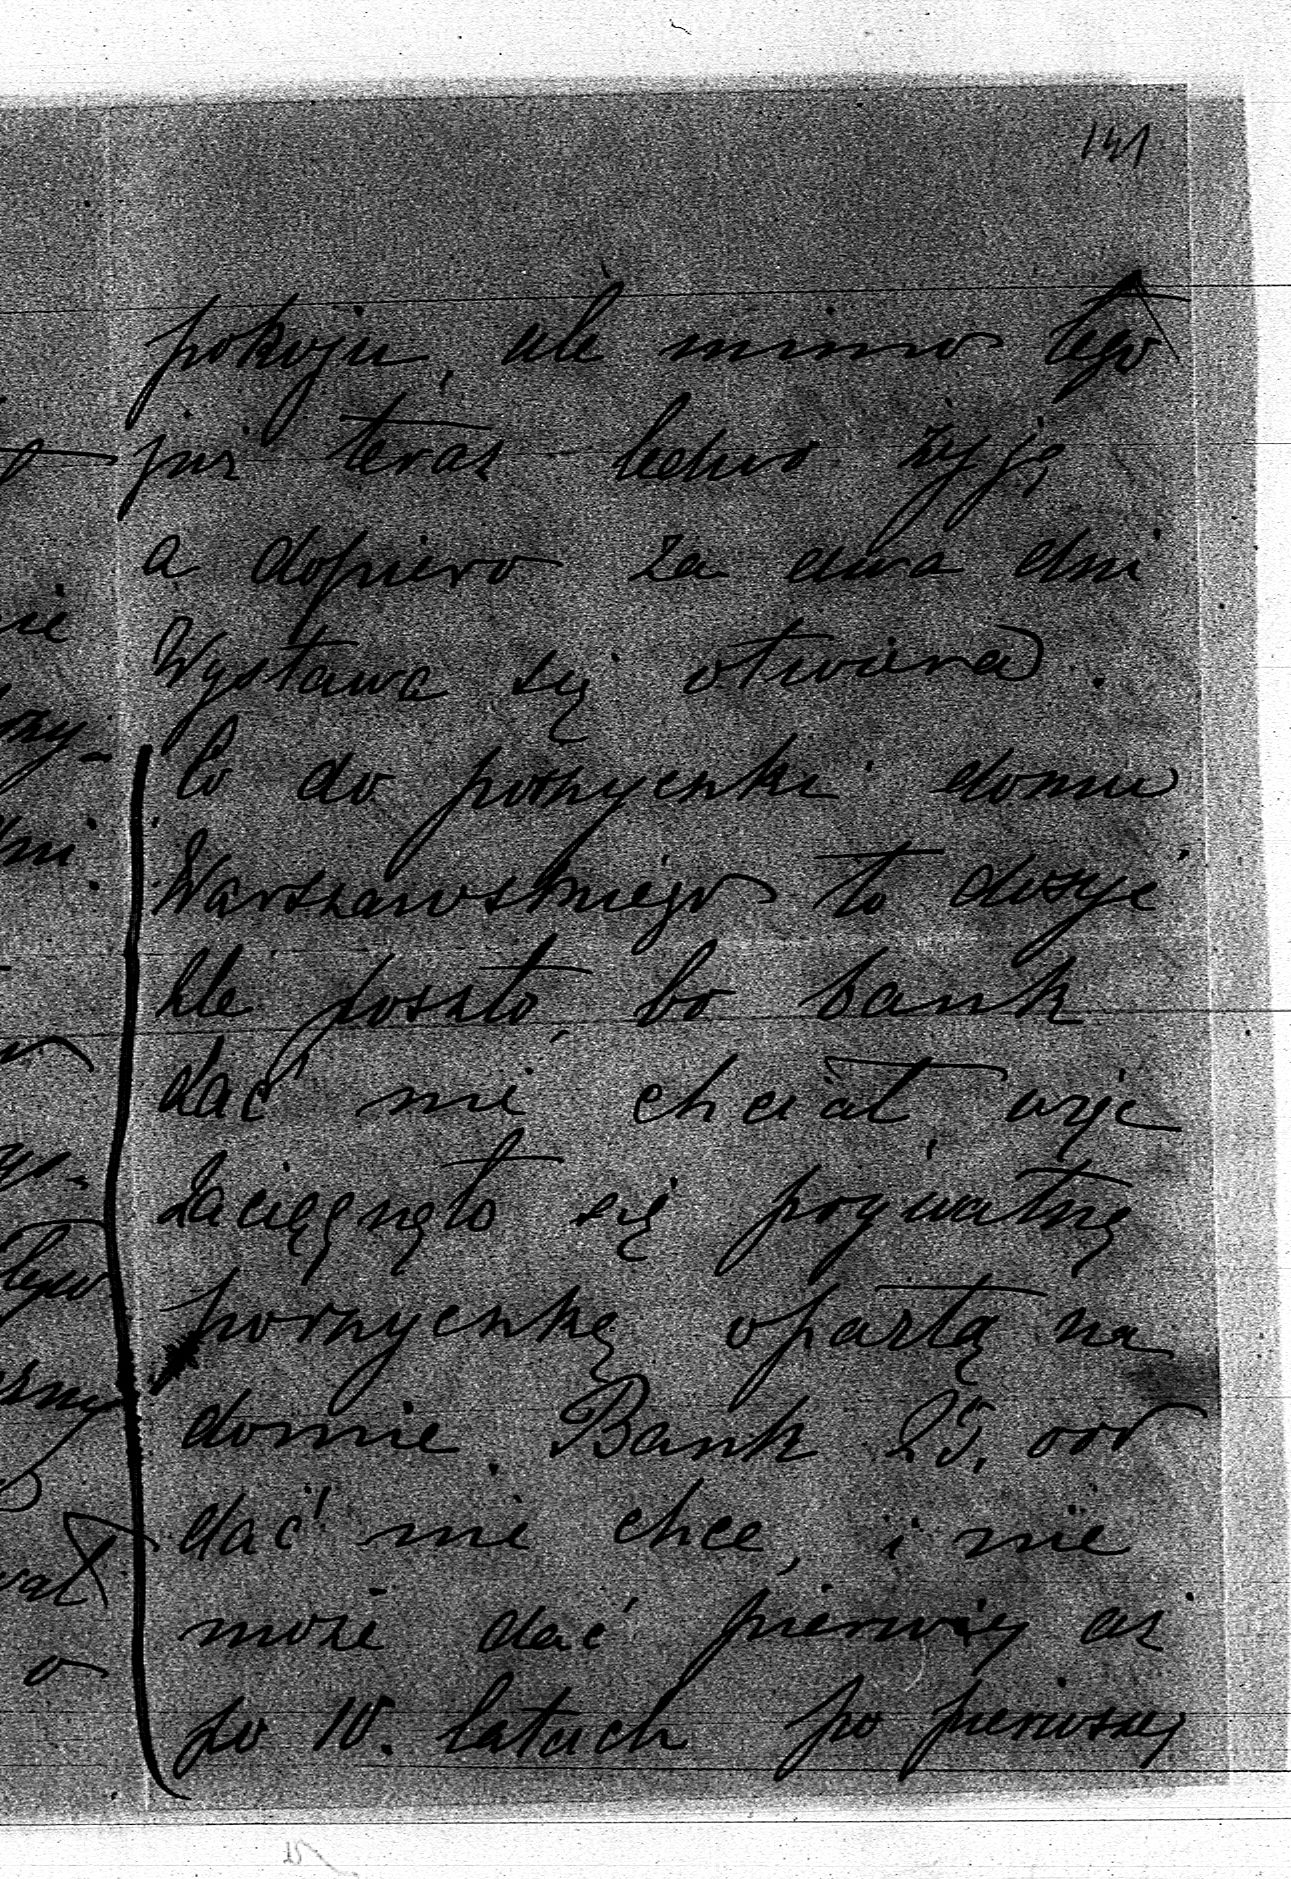 141
pokoju, ale mimo tego
już teraz ledwo żyję
a dopiero za dwa dni
Wystawa się otwiera.
Co do pożyczki domu
Warszawskiego to dosyć
źle poszło, bo bank
dać nie chciał, więc
zaciągnęło się prywatną
pożyczkę opartą na
domie. Bank 25,000
dać nie chce, i nie
może dać pierwiej aż
po 10. latach po pierwszej
nie
dni.